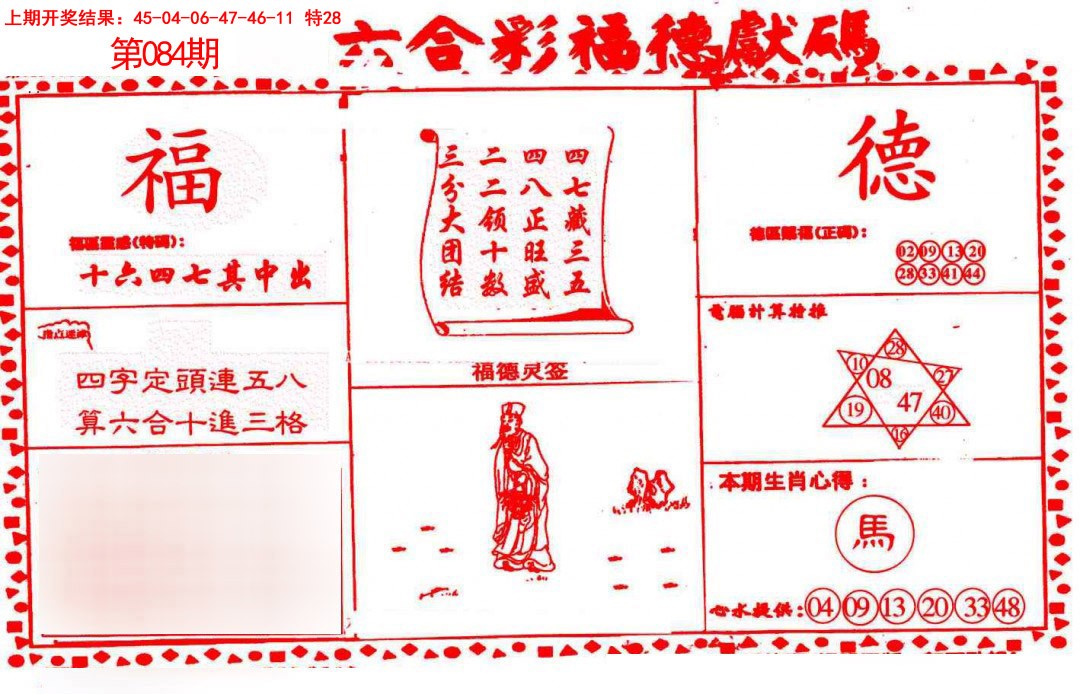 上期开奖结果：45-04-06-47-46-11 特28
第084期
六合彩福德獻碼
福
福區靈感(特碼)：
十六四七其中出
四字定頭連五八
算六合十進三格
四七藏三五
四八正旺盛
二二领十数
三分大团结
福德灵签
德
德區賜福(正碼)：
02 09 13 20
28 33 41 44
電腦計算推
28
10 08 27
19 47 40
16
本期生肖心得：
馬
心水提供：04 09 13 20 33 48